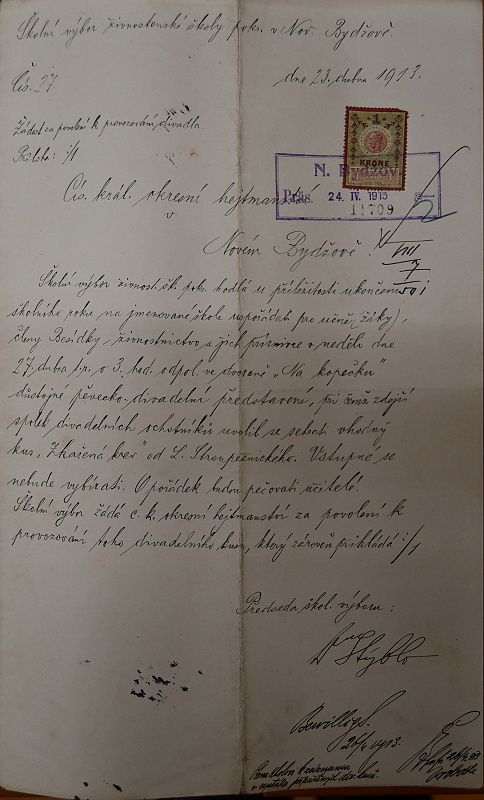 Školní výbor živnostenské školy pokr. v Nov. Bydžově.
Čís. 27
dne 23. dubna 1913.
Žádost za povolení k provozování divadla.
Příloha: ·/1
1
KRONE
N. Bydžov
Präs. 24. IV. 1913
11709
Cís. král. okresní hejtmanství
v
Novém Bydžově.
VIII
Školní výbor živnost. šk. pokr. hodlá u příležitosti ukončení
školního roku na jmenované škole uspořádati pro učně (žáky),
členy Besídky živnostnictva a jich příznivce v neděli dne
27. dubna t.r. o 3. hod. odpol. ve dvoraně „Na kopečku"
důstojné pěvecko-divadelní představení, při čemž zdejší
spolek divadelních ochotníků uvolil se sehrati vhodný
kus „Zkažená krev" od L. Stroupežnického. Vstupné se
nebude vybírati. O pořádek budou pečovati učitelé.
Školní výbor žádá c. k. okresní hejtmanství za povolení k
provozování toho divadelního kusu, který zároveň přikládá ·/1
Předseda škol. výboru:
Dr Stýblo
26/4 1913.